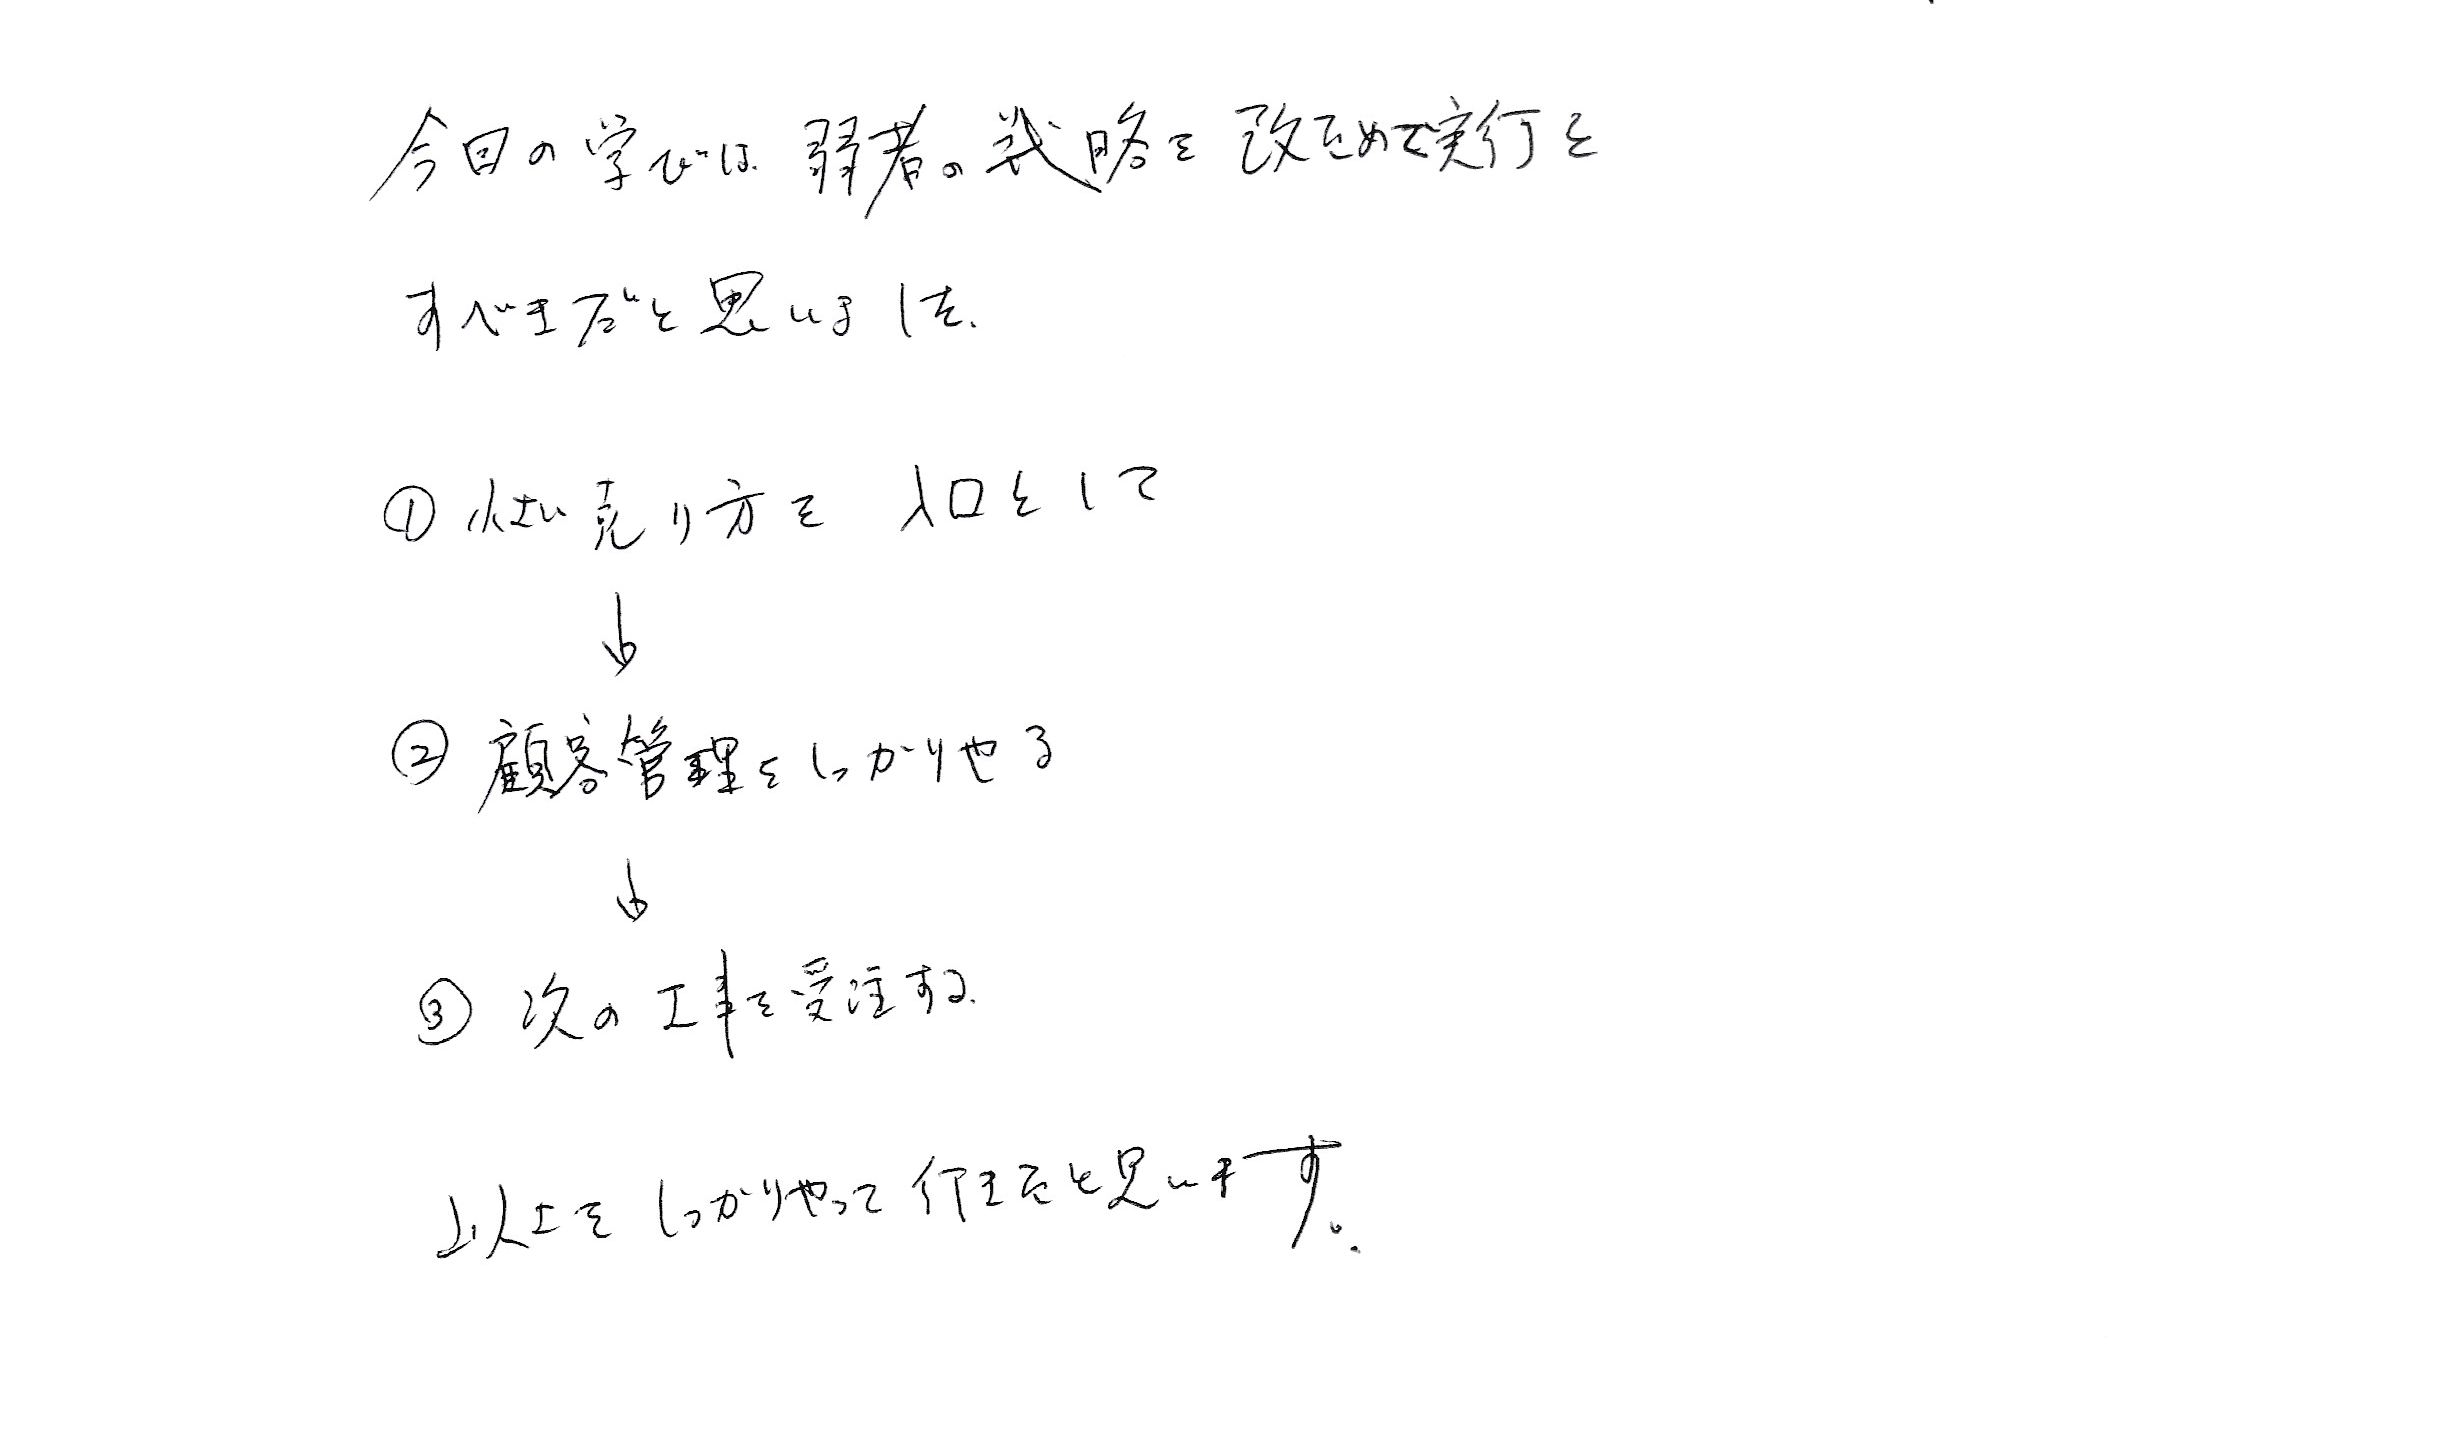 今回の学びは、弱者の戦略を改ためて実行を
すべきだと思いました。
① 小さい売り方を 入口として
↓
② 顧客管理をしっかりやる
↓
③ 次の工事を受注する。
以上を しっかりやって行きたと思います。